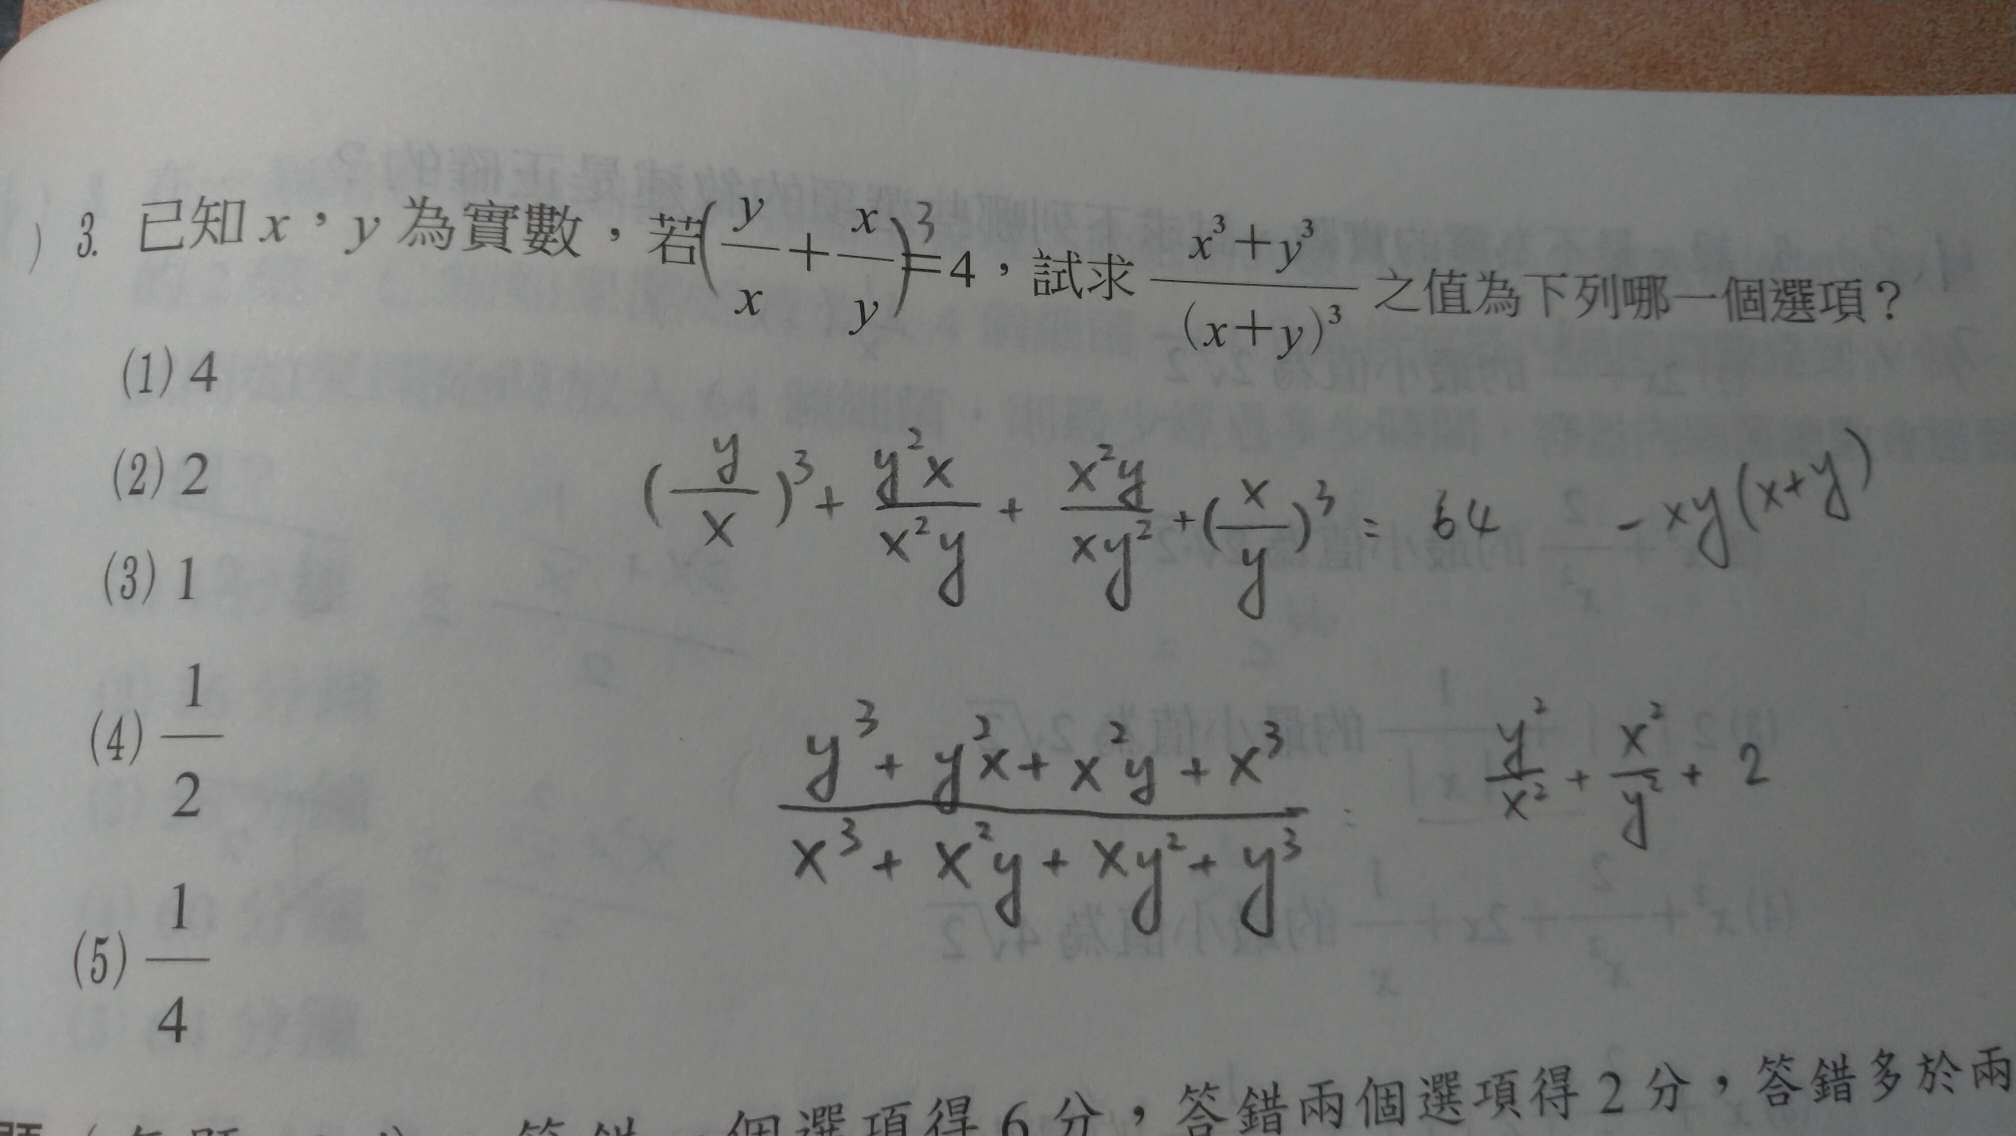 ) 3. 已知 x，y 為實數，若(y/x + x/y)³=4，試求 (x³+y³)/(x+y)³ 之值為下列哪一個選項？
(1) 4
(2) 2
(3) 1
(4) 1/2
(5) 1/4
(y/x)³ + y²x/x²y + x²y/xy² + (x/y)³ = 64
-xy(x+y)
(y³ + y²x + x²y + x³)/(x³ + x²y + xy² + y³) =
y²/x² + x²/y² + 2
個選項得 6 分，答錯兩個選項得 2 分，答錯多於兩